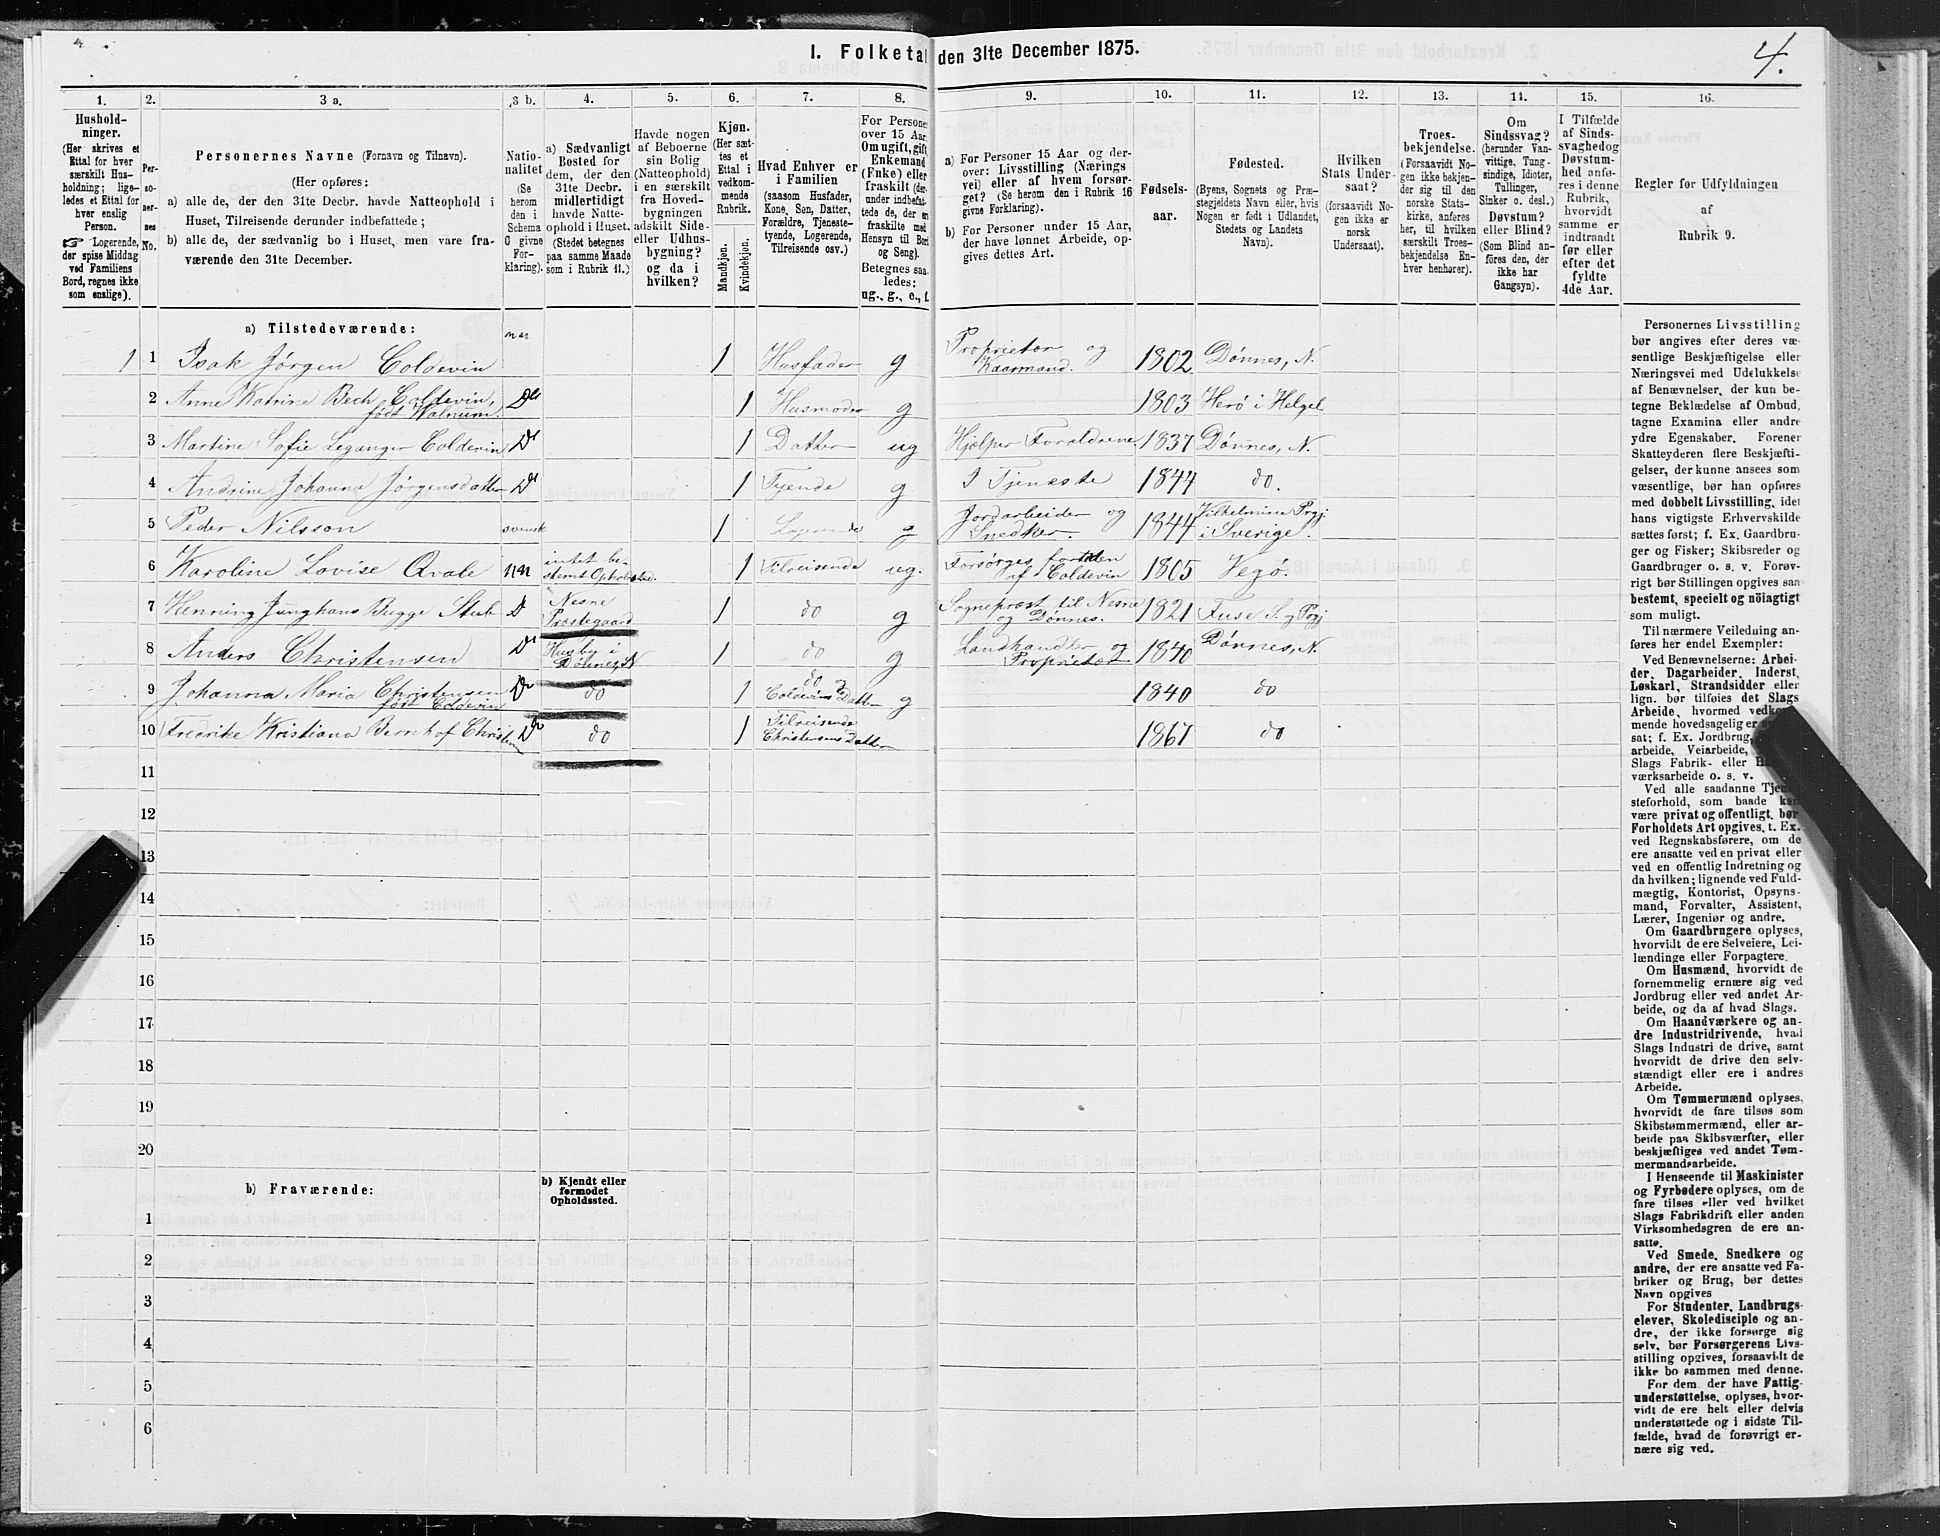 4
1. Folketal den 31te December 1875.
4.
1.
2.
3 a.
3 b.
4.
5.
6.
7.
8.
9.
10.
11.
12.
13.
14.
15.
16.
Hushold-
ninger.
(Her skrives et
Ettal for hver
særskilt Hus-
holdning; lige-
ledes et Ettal for
hver enslig
Person.
☞ Logerende,
der spise Middag
ved Familiens
Bord, regnes ikke
som enslige).
Per-
so-
ner-
nes
No.
Personernes Navne (Fornavn og Tilnavn).
(Her opføres:
a) alle de, der den 31te Decbr. havde Natteophold i
Huset, Tilreisende derunder indbefattede;
b) alle de, der sædvanlig bo i Huset, men vare fra-
værende den 31te December.
Natio-
nalitet
(Se
herom
den i
Schema
C givne
For-
klaring).
a) Sædvanligt
Bosted for
dem, der den
31te Decbr.
midlertidigt
havde Natte-
ophold i Huset.
(Stedet betegnes
paa samme Maade
som i Rubrik 11.)
Havde nogen
af Beboerne
sin Bolig
(Natteophold)
i en særskilt
fra Hoved-
bygningen
adskilt Side-
eller Udhus-
bygning?
og da i
hvilken?
Kjøn.
(Her sæt-
tes et
Ettal i
vedkom-
mende
Rubrik.
Mandkjøn.
Kvindekjøn.
Hvad Enhver er
i Familien
(saasom Husfader,
Kone, Søn, Datter,
Forældre, Tjeneste-
tyende, Logerende,
Tilreisende osv.)
For Persone
over 15 Aar
Om ugift, gift
Enkemand
(Enke) eller
fraskilt (der-
under indbefat-
tede de, der er
fraskilte med
Hensyn til Bord
og Seng).
Betegnes saa-
ledes:
ug., g., e., f.
a) For Personer 15 Aar og der-
over: Livsstilling (Nærings
vei) eller af hvem forsør-
get? (Se herom den i Rubrik 16
givne Forklaring).
b) For Personer under 15 Aar,
der have lønnet Arbeide, op-
gives dettes Art.
Fødsels-
aar.
Fødested.
(Byens, Sognets og Præ-
stegjeldets Navn eller, hvis
Nogen er født i Udlandet,
Stedets og Landets
Navn).
Hvilken
Stats Under-
saat?
(forsaavidt No-
gen ikke er
norsk
Undersaat).
Troes-
bekjendelse.
(Forsaavidt No-
gen ikke bekjen-
der sig til den
norske Stats-
kirke, anføres
her, til hvilken
særskilt Troes-
bekjendelse En-
hver henhører).
Om
Sindssvag?
(herunder Van-
vittige, Tung-
sindige, Idioter,
Tullinger,
Sinker o. desl.)
Døvstum?
eller Blind?
(Som Blind an-
føres den, der
ikke har
Gangsyn).
I Tilfælde
af Sinds-
svaghed og
Døvstum-
hed anfø-
res i denne
Rubrik,
hvorvidt
samme er
indtraadt
før eller
efter det
fyldte
4de Aar.
Regler for Udfyldningen
af
Rubrik 9.
a) Tilstedeværende:
1 1 Isak Jørgen Coldevin nor 1 Husfader g Proprietor og Kaarmand. 1802 Dønnes, N.
2 Anne Katrine Bech Coldevin, født Walnum. Do 1 Husmoder g 1803 Herø i Helgel
3 Martine Sofie Leganger Coldevin Do 1 Datter ug Hjælper Forældrene 1837 Dønnes, N.
4 Andrine Johanna Jørgensdatter Do 1 Tyende g I Tjeneste 1844 do.
5 Peder Nilsson svensk 1 Logerende g Jordarbeider og Snedker. 1844 Vilhelmina Prgj i Sverige.
6 Karoline Lovise Qvale nor intet be- stemt Opholdssted. 1 Tilreisende ug. Forsørges for tiden af Coldevin 1805 Vegø.
7 Henning Junghans Bugge Stub D Nesne Præstegaard 1 do g Sogneprest til Nesne og Dønnes. 1821 Fuse S. og Prgj
8 Anders Christensen Do Husby i Dønnes N 1 do g Landhandler og Proprietær 1840 Dønnes, N.
9 Johanna Maria Christensen født Coldevin Do do 1 do og Coldevins Datter g 1840 do
10 Fredrike Kristiana Bernhof Christen Do do 1 Tilreisende Christensens Datter 1867 do
11
12
13
14
15
16
17
18
19
20
b) Fraværende:
b) Kjendt eller
formodet
Opholdssted.
1
2
3
4
5
6
Personernes Livsstilling
bør angives efter deres væ-
sentlige Beskjæftigelse eller
Næringsvei med Udelukkelse
af Benævnelser, der kun be-
tegne Beklædelse af Ombud,
tagne Examina eller andre
ydre Egenskaber. Forener
Skatteyderen flere Beskjæfti-
gelser, der kunne ansees som
væsentlige, bør han opføres
med dobbelt Livsstilling, idet
hans vigtigste Erhvervskilde
sættes først; f. Ex. Gaardbru-
ger og Fisker; Skibsreder og
Gaardbruger o. s. v. Forøv-
rigt bør Stillingen opgives saa
bestemt, specielt og nöiagtigt
som muligt.
Til nærmere Veiledning an-
føres her endel Exempler:
Ved Benævnelserne: Arbei-
der, Dagarbeider, Inderst,
Løskarl, Strandsidder eller
lign. bør tilføies det Slags
Arbeide, hvormed vedkom-
mende hovedsagelig er
sat; f. Ex. Jordbrug,
arbeide, Veiarbeide,
Slags Fabrik- eller
værksarbeide o. s. v.
Ved alle saadanne Tjen-
steforhold, som baade kan
være privat og offentligt, bør
Forholdets Art opgives, t. Ex.
ved Regnskabsførere, om de
ere ansatte ved en privat eller
ved en offentlig Indretning og
da hvilken; lignende ved Fuld-
mægtig, Kontorist, Opsyns-
mand, Forvalter, Assistent,
Lærer, Ingeniør og andre.
Om Gaardbrugere oplyses,
hvorvidt de ere Selveiere, Lei-
lændinge eller Forpagtere.
Om Husmænd, hvorvidt de
fornemmelig ernære sig ved
Jordbrug eller ved andet Ar-
beide, og da af hvad Slags.
Om Haandværkere og an-
dre Industridrivende, hvad
Slags Industri de drive, samt
hvorvidt de drive den selv-
stændigt eller ere i andres
Arbeide.
Om Tømmermænd oplyses,
hvorvidt de fare tilsøs som
Skibstømmermænd, eller ar-
beide paa Skibsværfter, eller
beskjæftiges ved andet Tøm-
mermandsarbeide.
I Henseende til Maskinister
og Fyrbødere oplyses, om de
fare tilsøs eller ved hvilket
Slags Fabrikdrift eller anden
Virksomhedsgren de ere an-
satte.
Ved Smede, Snedkere og
andre, der ere ansatte ved Fa-
briker og Brug, bør dettes
Navn opgives
For Studenter, Landbrugs-
elever, Skoledisciple og an-
dre, der ikke forsørge sig
selv, bør Forsørgerens Livs-
stilling opgives, forsaavidt de
ikke bo sammen med denne.
For dem, der have Fattig-
understøttelse, oplyses, hvor-
vidt de ere helt eller delvis
understøttede og i sidste Til-
fælde, hvad de forøvrigt er-
nære sig ved.